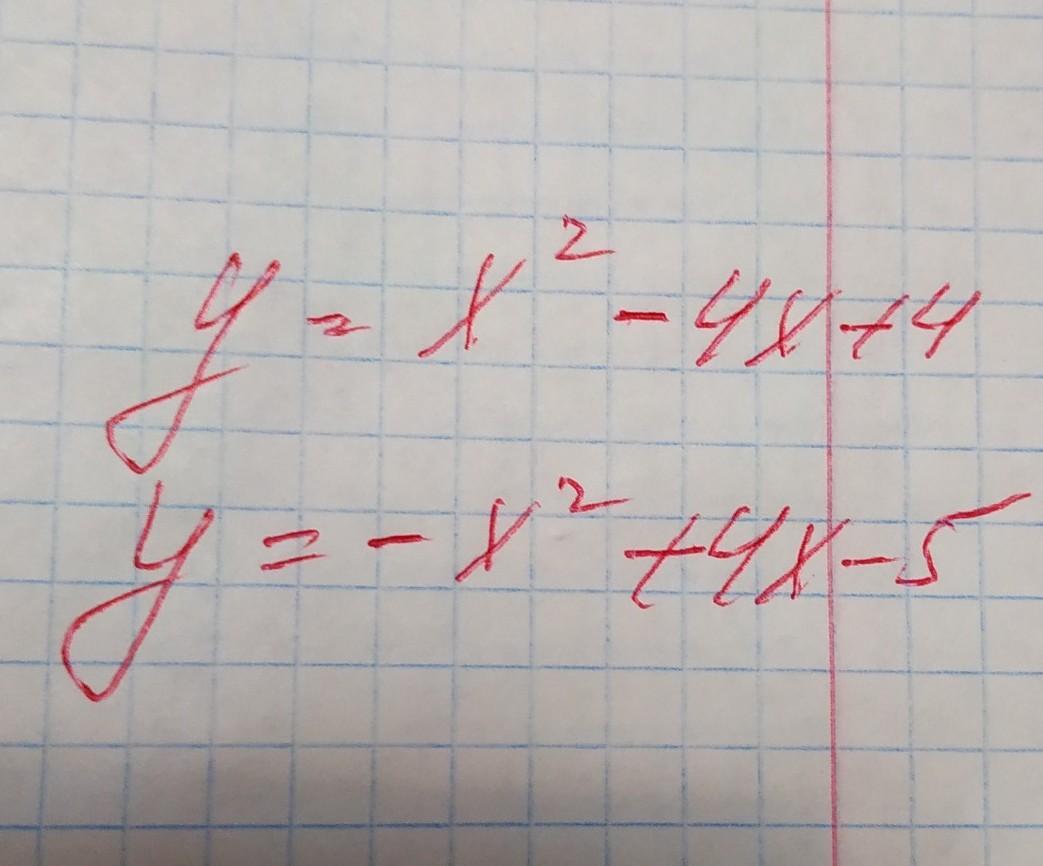 y = x² - 4x + 4
y = - x² + 4x - 5